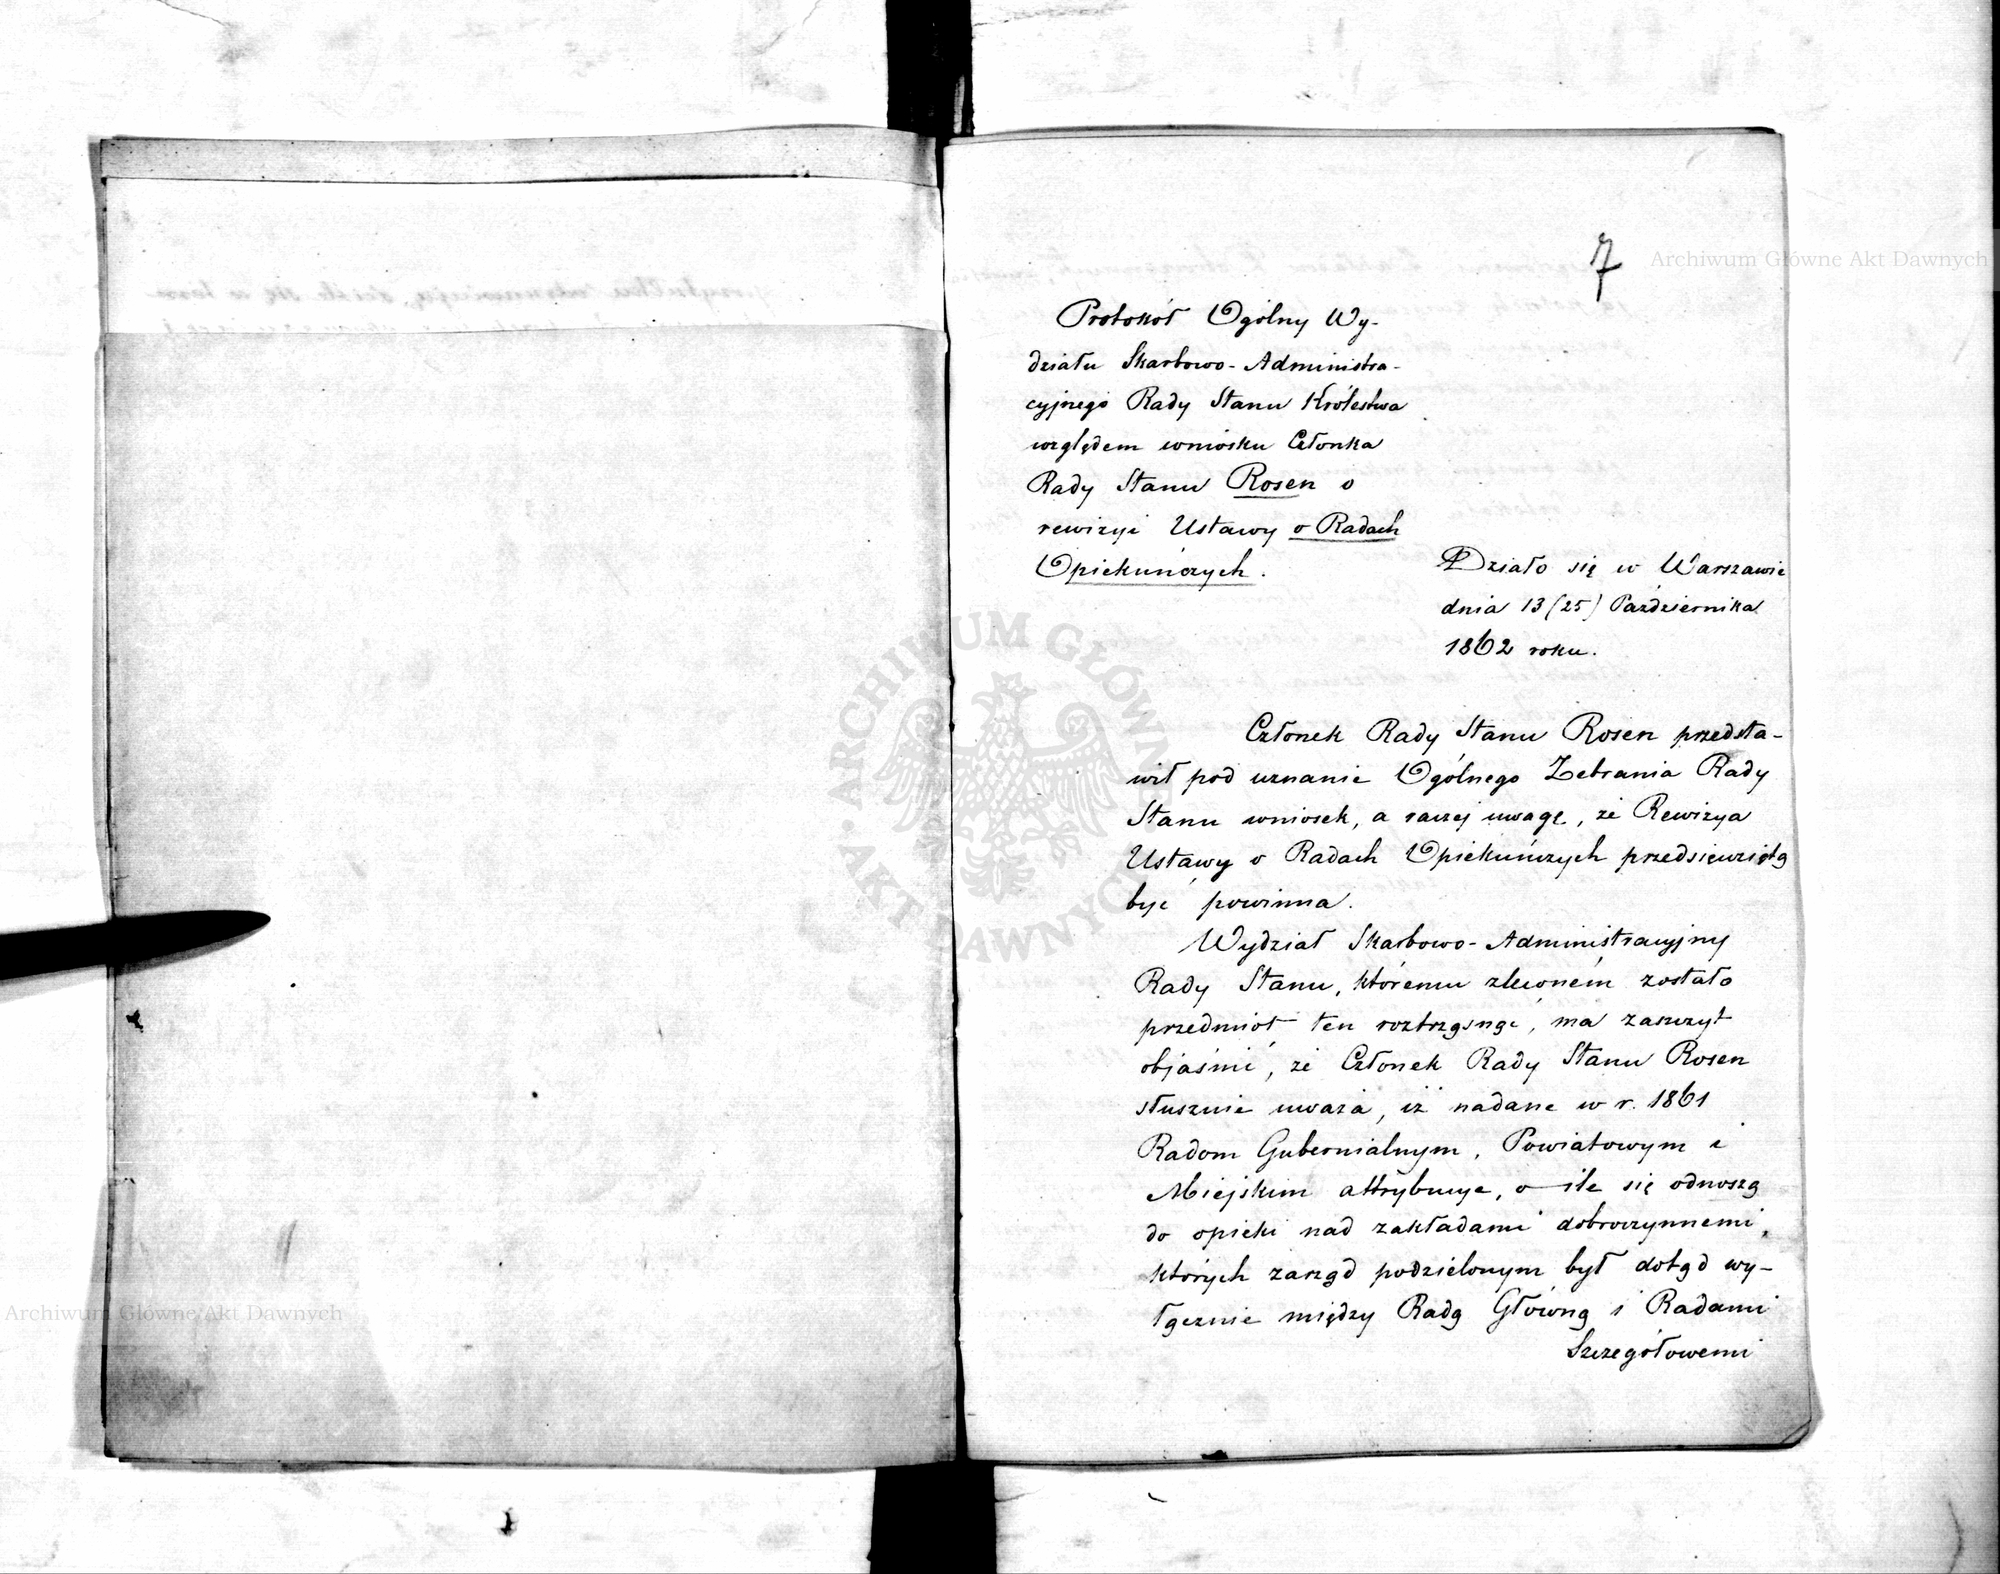 7
Protokół Ogólny Wy-
działu Skarbowo-Administra-
cyjnego Rady Stanu Królestwa
względem wniosku Członka
Rady Stanu Rosen o
rewizyi Ustawy o Radach
Opiekuńczych.
Działo się w Warszawie
dnia 13 (25) Października
1862 roku.
Członek Rady Stanu Rosen przedsta-
wił pod uznanie Ogólnego Zebrania Rady
Stanu wniosek, a raczej uwagę, że Rewizya
Ustawy o Radach Opiekuńczych przedsięwziętą
być powinna.
Wydział Skarbowo-Administracyjny
Rady Stanu, któremu zleconém zostało
przedmiot ten roztrząsnąć, ma zaszczyt
objaśnić, że Członek Rady Stanu Rosen
słusznie uważa, iż nadane w r. 1861
Radom Gubernialnym, Powiatowym i
Miejskim attrybucye, o ile się odnoszą
do opieki nad zakładami dobroczynnemi,
których zarząd podzielonym był dotąd wy-
łącznie między Radą Główną i Radami
Szczegółowemi
Archiwum Główne Akt Dawnych
Archiwum Główne Akt Dawnych
ARCHIWUM GŁÓWNE AKT DAWNYCH